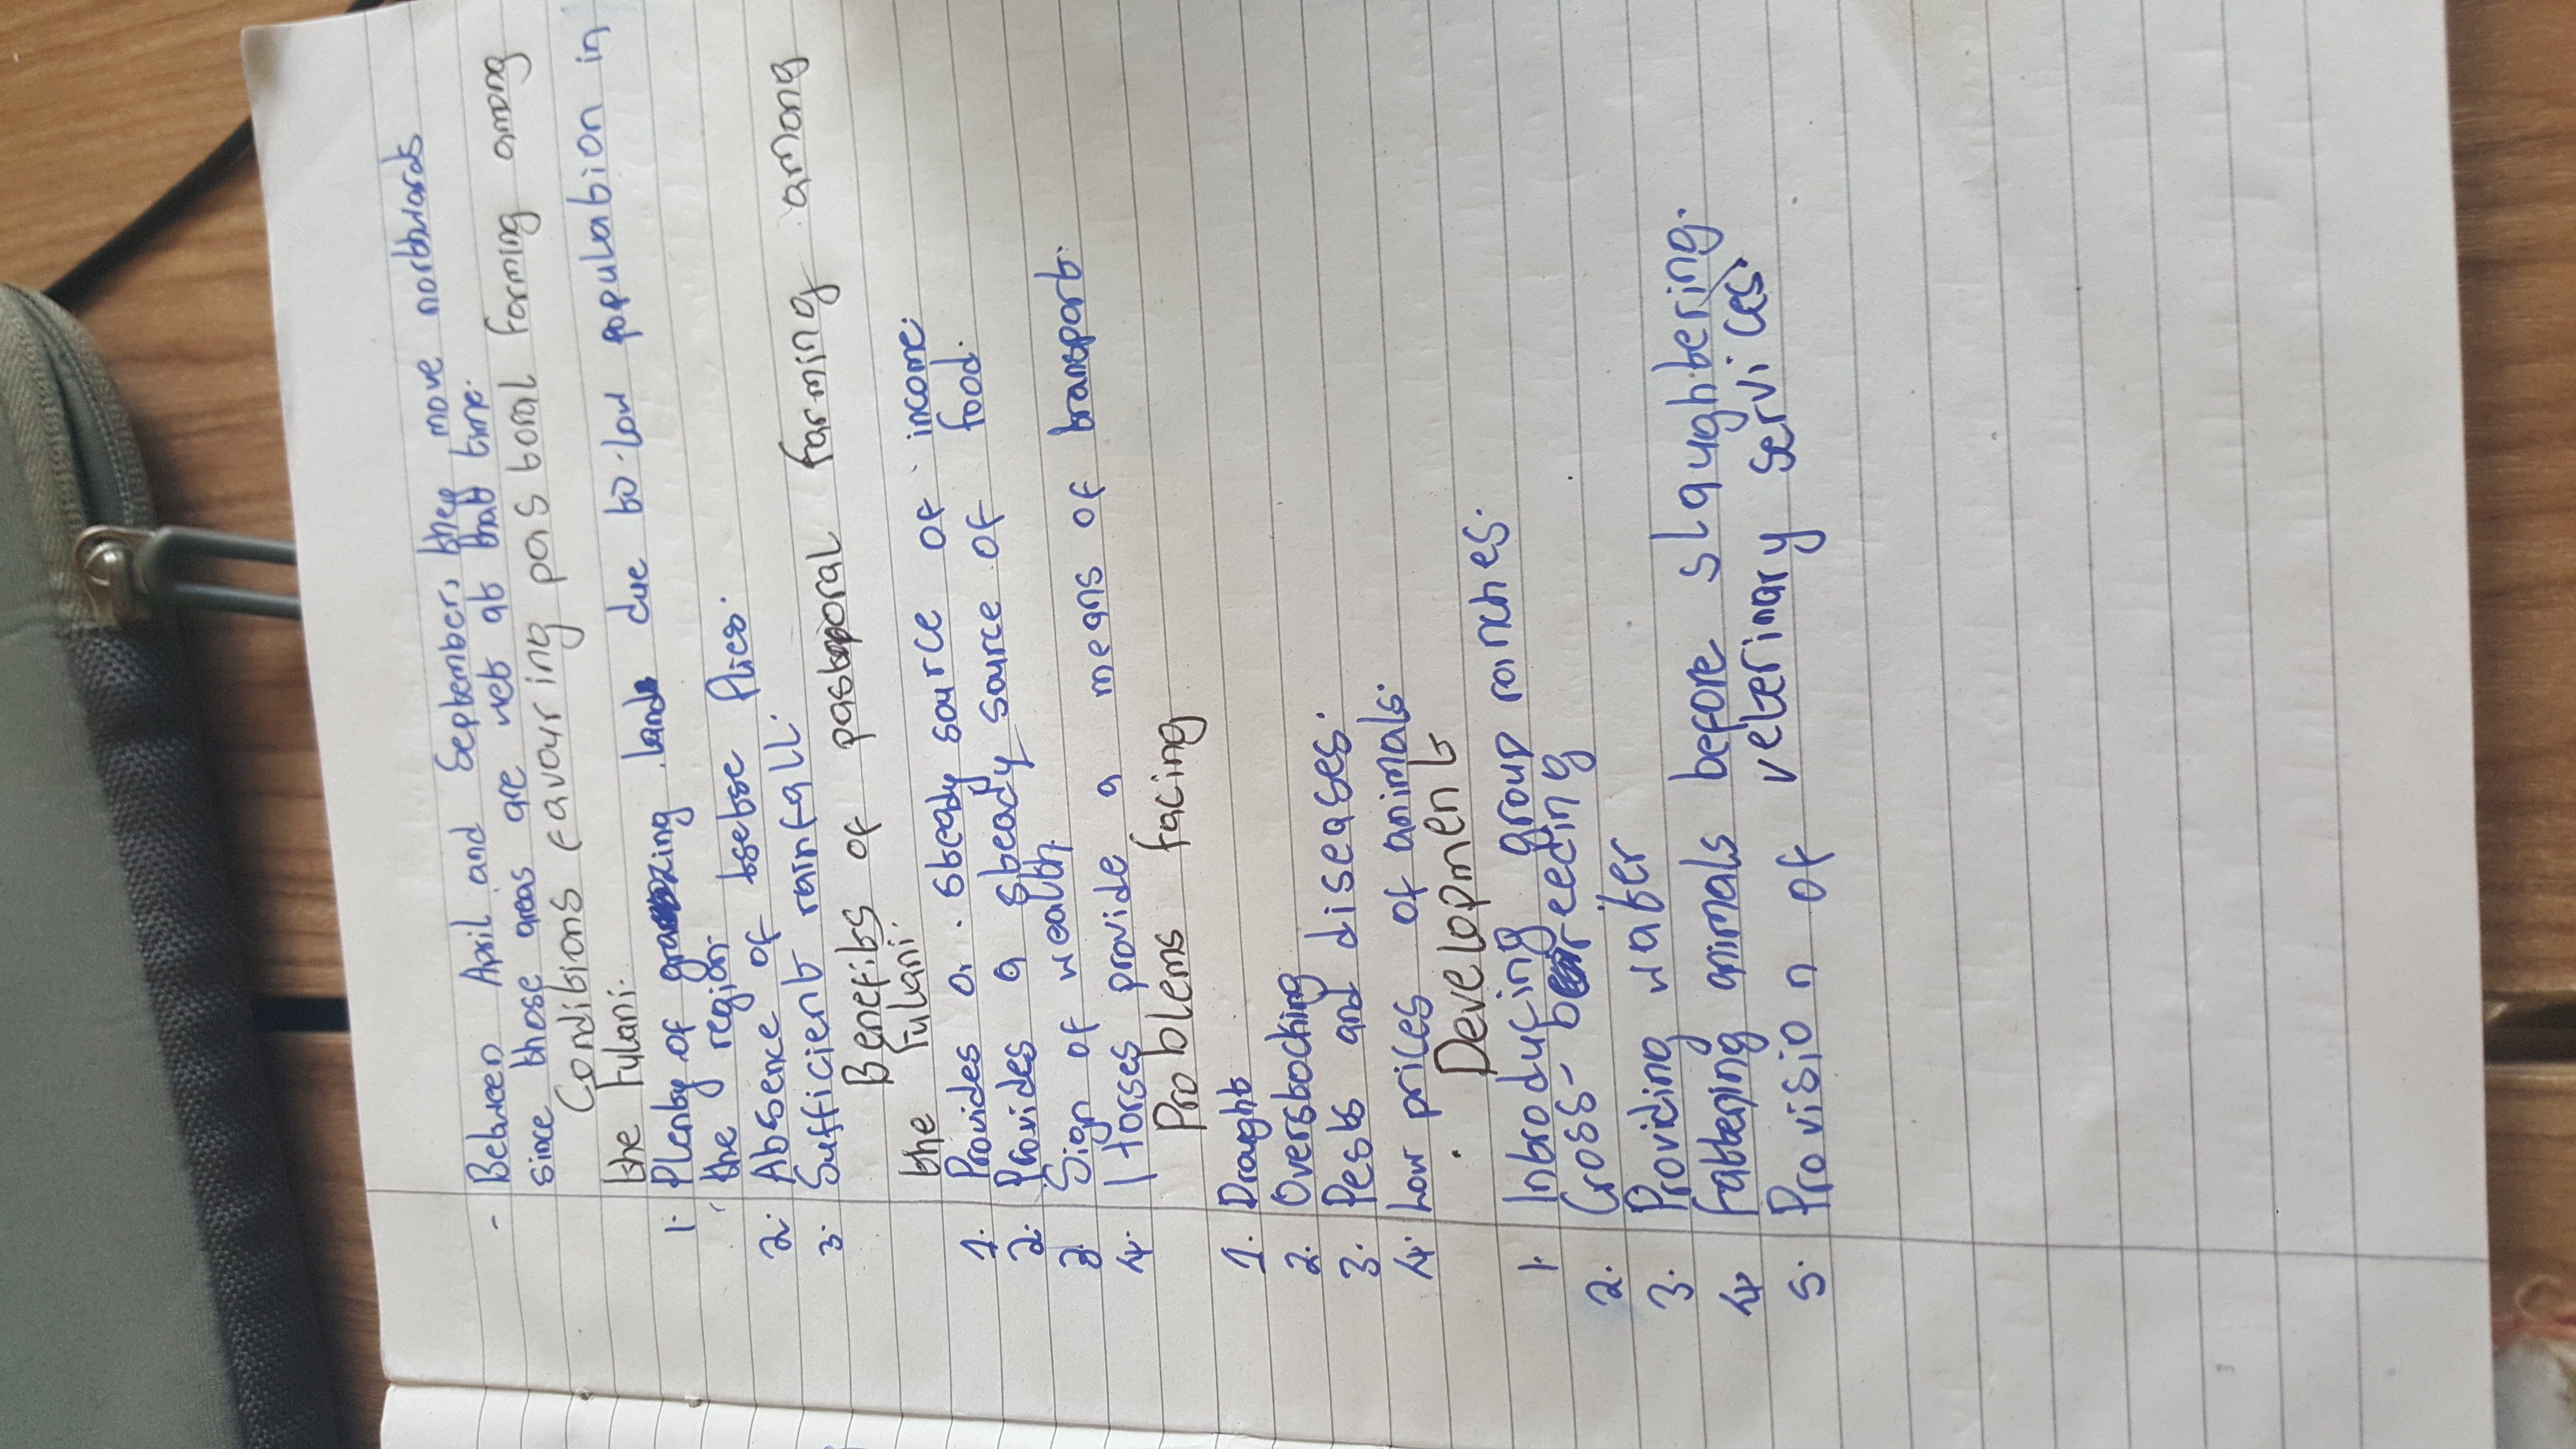 - Between April and September, they move northwards
since those areas are wet at that time.
Conditions favouring pastoral farming among
the Fulani.
1. Plenty of grazing land due to low population in
the region.
2. Absence of tsetse flies.
3. Sufficient rainfall.
Benefits of pastoral farming among
the Fulani.
1. Provides a steady source of income.
2. Provides a steady source of food.
3. Sign of wealth.
4. Horses provide a means of transport.
Problems facing
1. Drought
2. Overstocking
3. Pests and diseases.
4. Low prices of animals.
Development
1. Introducing group ranches.
2. Cross-breeding
3. Providing water
4. Fattening animals before slaughtering.
5. Provision of veterinary services.